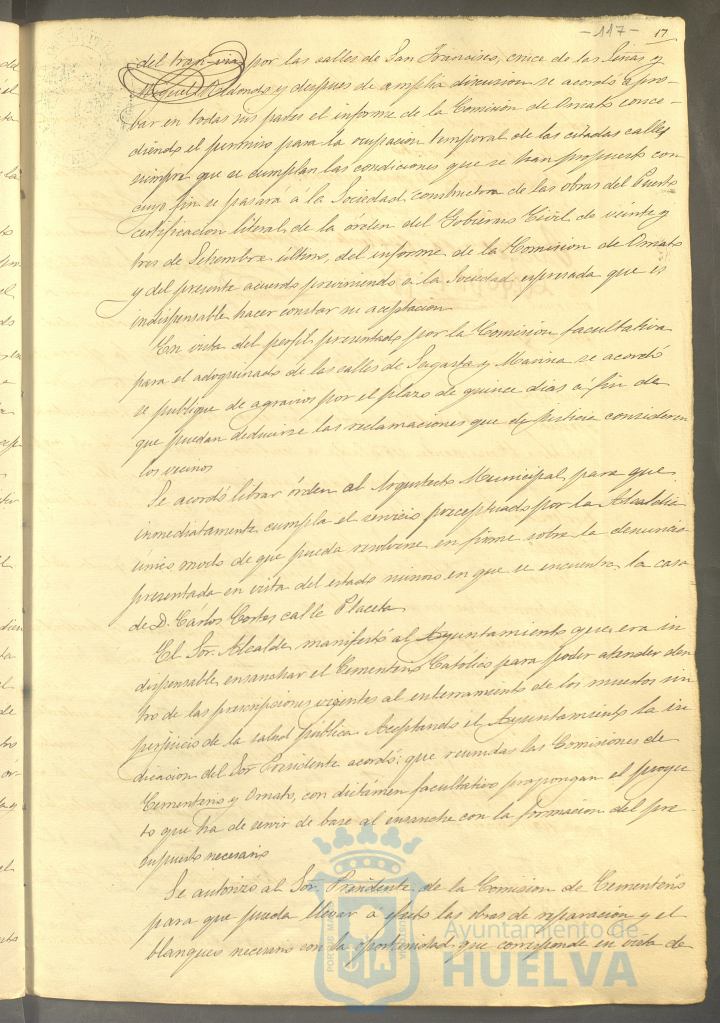 -117- 17
del tran-via por las calles de San Francisco, cruce de las Señas y
Miguel Redondo y despues de amplia discusion se acordó apro-
bar en todas sus partes el informe de la Comision de Ornato conce-
diendo el permiso para la ocupacion temporal de las citadas calles
siempre que se cumplan las condiciones que se han propuesto con
cuyo fin se pasará á la Sociedad constructora de las obras del Puerto
certificacion literal de la órden del Gobierno Civil de veinte y
tres de Setiembre último, del informe de la Comision de Ornato
y del presente acuerdo previniendo á la Sociedad espresada que es
indispensable hacer constar su aceptacion
En vista del perfil presentado por la Comision facultativa
para el adoquinado de las calles de Sagasta y Marina se acordó
se publique de agravios por el plazo de quince dias á fin de
que puedan deducirse las reclamaciones que de justicia consideren
los vecinos
Se acordó librar órden al Arquitecto Municipal para que
inmediatamente cumpla el servicio preceptuado por la Alcaldia
único modo de que pueda resolverse en firme sobre la denuncia
presentada en vista del estado ruinoso en que se encuentra la casa
de D. Cárlos Cortes calle Placeta
El Sor. Alcalde manifestó al Ayuntamiento que era in
dispensable ensanchar el Cementerio Catolico para poder atender den
tro de las prescripciones vigentes al enterramiento de los muertos sin
perjuicio de la salud pública Aceptando el Ayuntamiento la in
dicacion del Sor Presidente acordó: que reunidas las Comisiones de
Cementerio y Ornato, con dictámen facultativo propongan el proyec
to que ha de servir de base al ensanche con la formacion del pre-
supuesto necesario
Se autorizó al Sor. Presidente de la Comision de Cementerio
para que pueda llevar á efecto las obras de reparacion y el
blanqueo necesario con la oportunidad que corresponde en vista de
Ayuntamiento de
HUELVA